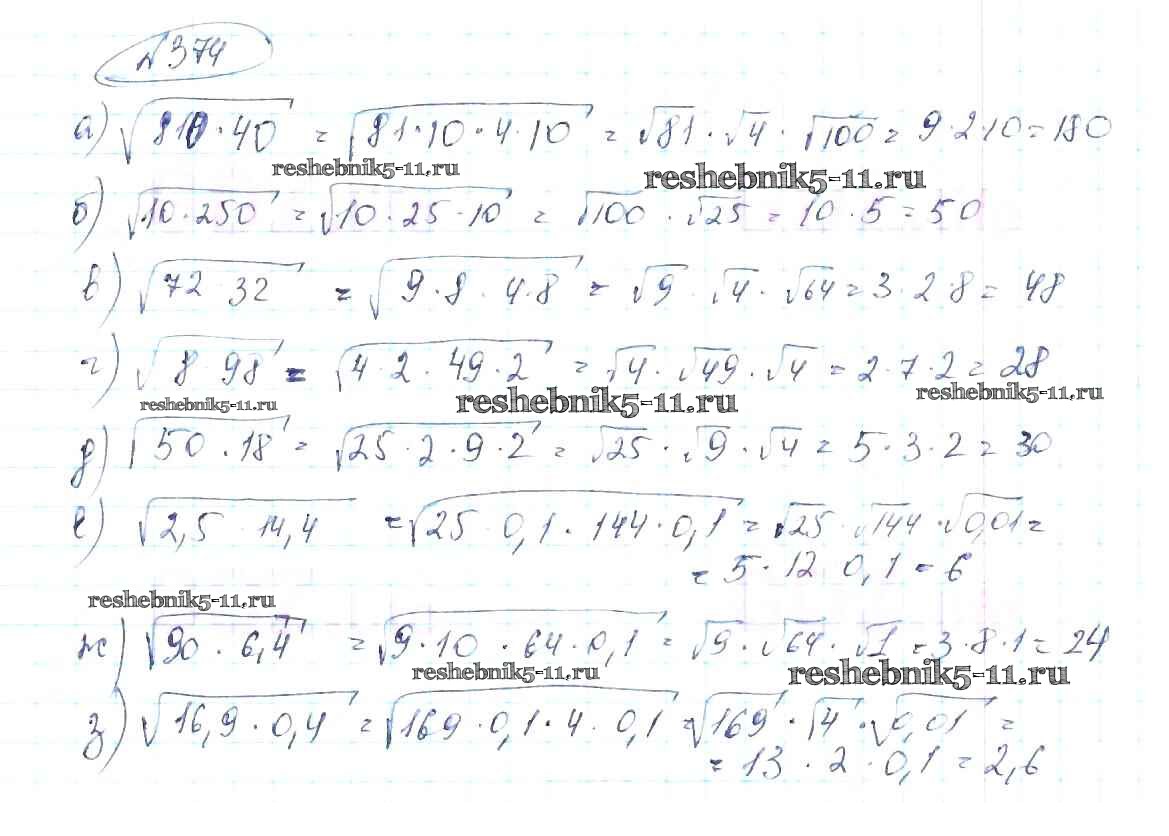 № 374
а) √810·40 = √81·10·4·10 = √81·√4·√100 = 9·2·10=180
reshebnik5-11.ru reshebnik5-11.ru
б) √10·250 = √10·25·10 = √100·√25 = 10·5=50
в) √72 32 = √9·8·4·8 = √9 √4·√64=3·2·8= 48
г) √8 98 = √4·2·49·2 = √4·√49·√4 = 2·7·2=28
reshebnik5-11.ru reshebnik5-11.ru reshebnik5-11.ru
д) √50·18 = √25·2·9·2 = √25·√9·√4 = 5·3·2=30
е) √2,5 14,4 =√25·0,1·144·0,1 = √25·√144·√0,01 =
= 5·12 0,1 = 6
reshebnik5-11.ru
ж) √90·6,4 = √9·10·64·0,1 = √9·√64·√1 = 3·8·1=24
reshebnik5-11.ru reshebnik5-11.ru
з) √16,9·0,4 = √169·0,1·4·0,1 =√169·√4·√0,01 =
= 13·2·0,1 = 2,6